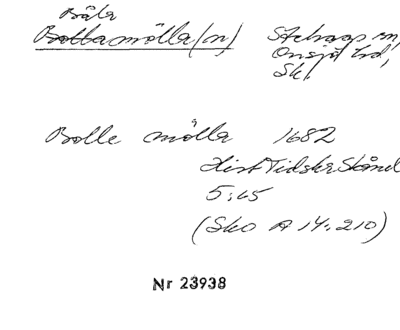 Båla
Bollamölla(n) Stehag sn,
Onsjö hd,
Sk.
Bolle mölla 1682
Hist Tidskr Skånel
5:65
(Sko A 14:210)
Nr 23938